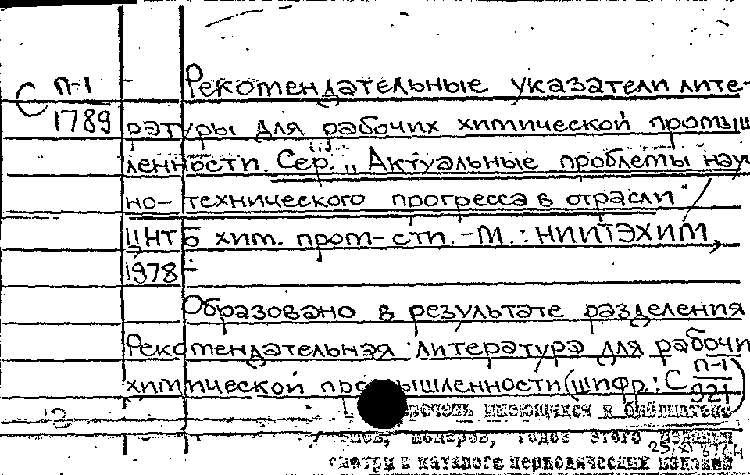 С П-1 Рекомендательные указатели лите-
1789 ратуры для рабочих химической промыш
ленности. Сер. „Актуальные проблемы науч
но-технического прогресса в отрасли" /
ЦНТБ хим. пром-сти. -М.: НИИТЭХИМ,
1978-
Образовано в результате разделения
Рекомендательная литература для рабочи
химической промышленности (шифр.: С П-1
921)
речень имеющихся в библиотеке
номеров, годов этого издания
смотри в каталоге периодических изданий